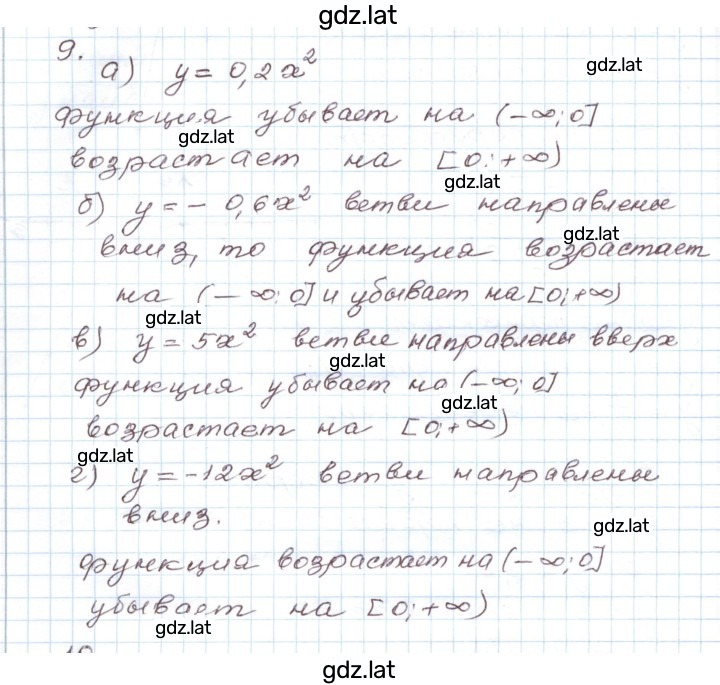 gdz.lat
9.
а) y = 0,2x²
gdz.lat
функция убывает на (-∞;0]
gdz.lat
возрастает на [0;+∞)
gdz.lat
б) y = - 0,6x² ветви направлены
gdz.lat
вниз, то функция возрастает
на (-∞;0] и убывает на [0;+∞)
gdz.lat
в) y = 5x² ветви направлены вверх
gdz.lat
функция убывает на (-∞;0]
gdz.lat
возрастает на [0;+∞)
gdz.lat
г) y = -12x² ветви направлены
вниз.
gdz.lat
функция возрастает на (-∞;0]
убывает на [0;+∞)
gdz.lat
gdz.lat